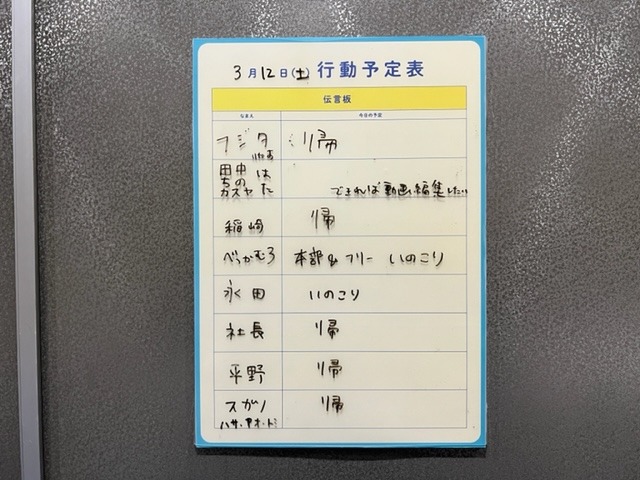 3月12日(土) 行動予定表
伝言板
なまえ 今日の予定
フジタ 帰
田中は
ちの
カズヤた できれば動画編集したい
稲崎 帰
べっかむろ 本部&フリー いのこり
永田 いのこり
社長 帰
平野 帰
スガノ 帰